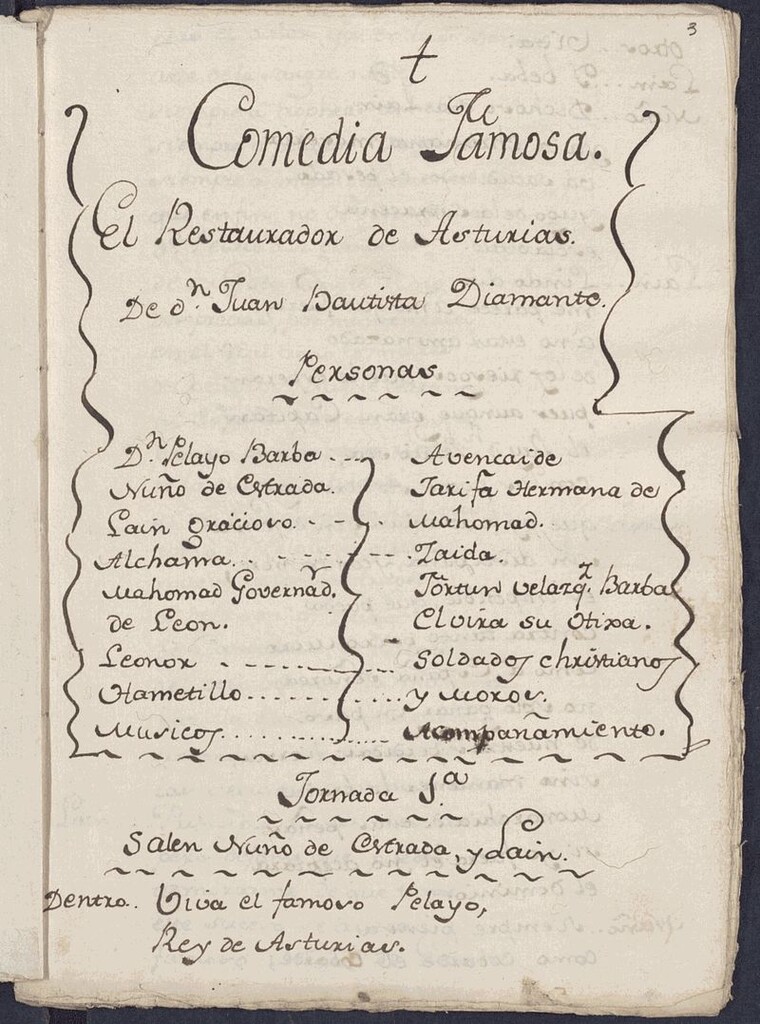 3
†
Comedia Famosa.
El Restaurador de Asturias.
De dn Juan Bautista Diamante.
Personas
Dn Pelayo Barba
Nuño de Estrada.
Lain Gracioso.
Alchama.
Mahomad Governador
de Leon.
Leonor
Hametillo
Musicos
Avencaide
Tarifa Hermana de
Mahomad.
Zaida.
Fortun Velazqz Barba
Elvira su Hixa.
Soldados christianos
y Moros.
Acompañamiento.
Jornada 1a.
Salen Nuño de Estrada, y Lain.
Dentro. Viva el famoso Pelayo,
Rey de Asturias.